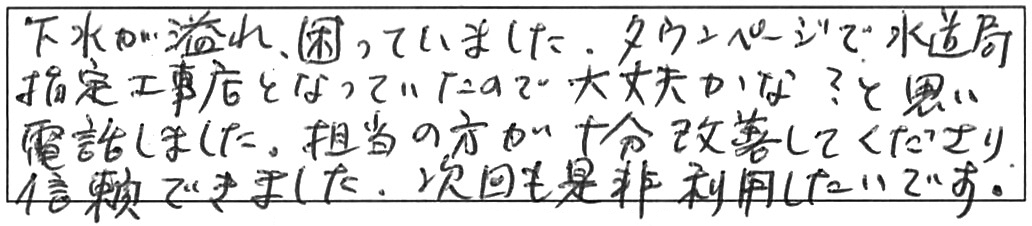 下水が溢れ、困っていました。タウンページで水道局
指定工事店となっていたので大丈夫かな？と思い
電話しました。担当の方が十分改善してくださり
信頼できました。次回も是非利用したいです。